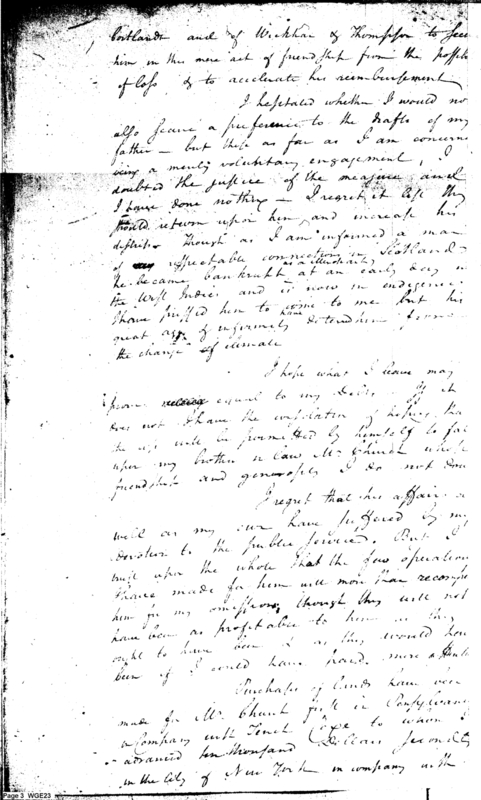 Cortlandt and of Wickham & Thompson to
him in this mere act of friendship from the
of loss & to accelerate his reimbursement
I hesitated whether I would no
also secure a preference to the drafts of my
father — but these as far as I am concerne
being a merely voluntary engagement, I
doubted the justice of the measure and
I have done nothing — I regret it lest they
should return upon him and increase his
distress Though as I am informed a man
of respectable connections in Scotland
he became bankrupt at an early day in
the West Indies and is now in indigence.
I have pressed him to come to me but his
great age & infirmity have deterred him from
the change of climate
I hope what I leave may
prove equal to my Debts. If it
does not I have the consolation of hoping tha
the loss will be permitted by himself to fal
upon my brother in law Mr Church whose
friendship and generosity I do not dou
I regret that his affairs as
well as my own have suffered by my
devotion to the public service. But I
trust upon the whole that the few operation
I have made for him will more than recompe
him for my omissions, though they will not
have been as profitable to him as they
ought to have been & as they would have
been if I could have paid more
Purchases of lands have been
made for Mr Church first in Pensylvan
in Company with Tench Coxe to whom I
advanced ten thousand Dollars secondly
in the City of New York in company with
Page 3 WGE23